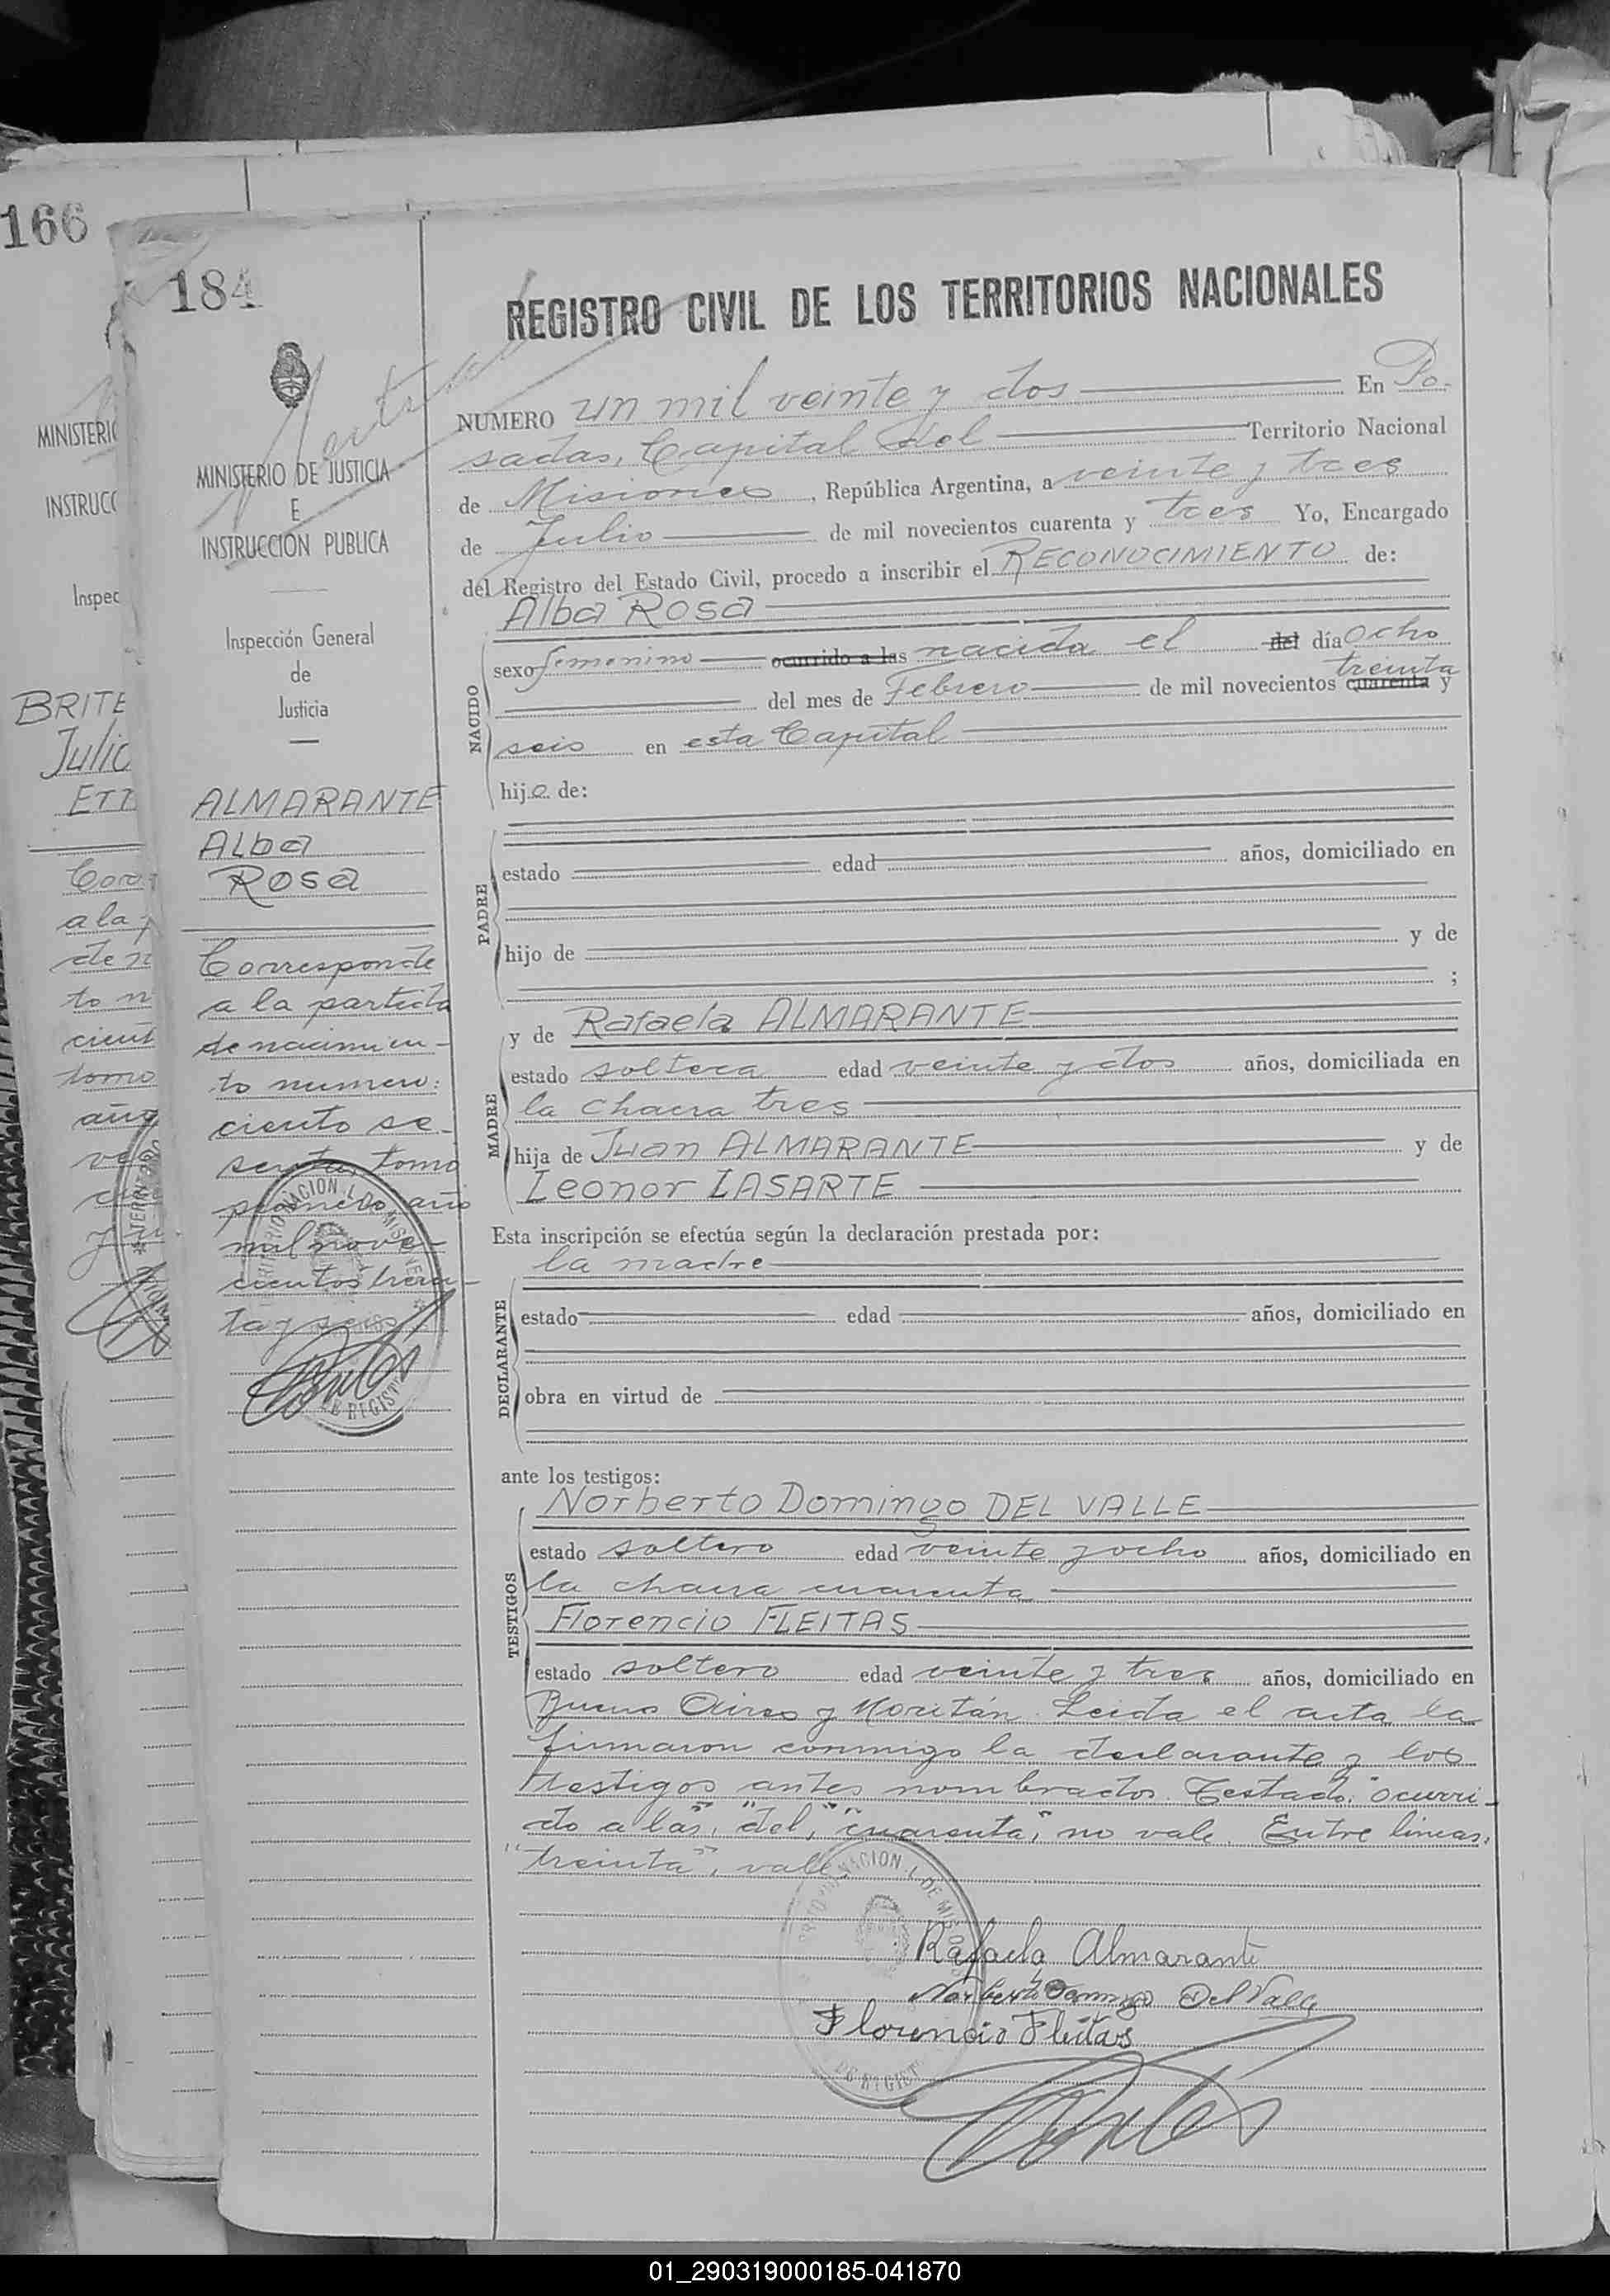 166
MINISTERI
INSTRUCC
Inspec
BRITE
Julio
ETT
a la
de n
to n
cient
tomo
año
184
MINISTERIO DE JUSTICIA
E
INSTRUCCIÓN PUBLICA
Inspección General
de
Justicia
ALMARANTE
Alba
Rosa
Corresponde
a la partida
de nacimien-
to numero:
ciento se-
senta, tomo
primero, año
mil nove-
cientos trein-
ta y seis
REGISTRO CIVIL DE LOS TERRITORIOS NACIONALES
NUMERO un mil veinte y dos En Po-
sadas, Capital del Territorio Nacional
de Misiones, República Argentina, a veinte y tres
de Julio de mil novecientos cuarenta y tres Yo, Encargado
del Registro del Estado Civil, procedo a inscribir el RECONOCIMIENTO de:
Alba Rosa
NACIDO
sexo femenino ocurrido a las nacida el del día ocho
treinta
del mes de Febrero de mil novecientos cuarenta y
seis en esta Capital
hija de:
PADRE
estado edad años, domiciliado en
hijo de y de
;
MADRE
y de Rafaela ALMARANTE
estado soltera edad veinte y dos años, domiciliada en
la chacra tres
hija de Juan ALMARANTE y de
Leonor LASARTE
Esta inscripción se efectúa según la declaración prestada por:
la madre
DECLARANTE
estado edad años, domiciliado en
obra en virtud de
ante los testigos:
TESTIGOS
Norberto Domingo DEL VALLE
estado soltero edad veinte y ocho años, domiciliado en
la chacra cuarenta
Florencio FLEITAS
estado soltero edad veinte y tres años, domiciliado en
Buenos Aires y Moritán. Leida el acta la
firmaron conmigo la declarante y los
testigos antes nombrados. Testado: "ocurri-
do a las", "del", "cuarenta", no vale. Entre lineas:
"treinta", vale
Rafaela Almarante
Norberto Domingo Del Valle
Florencio Fleitas
01_290319000185-041870